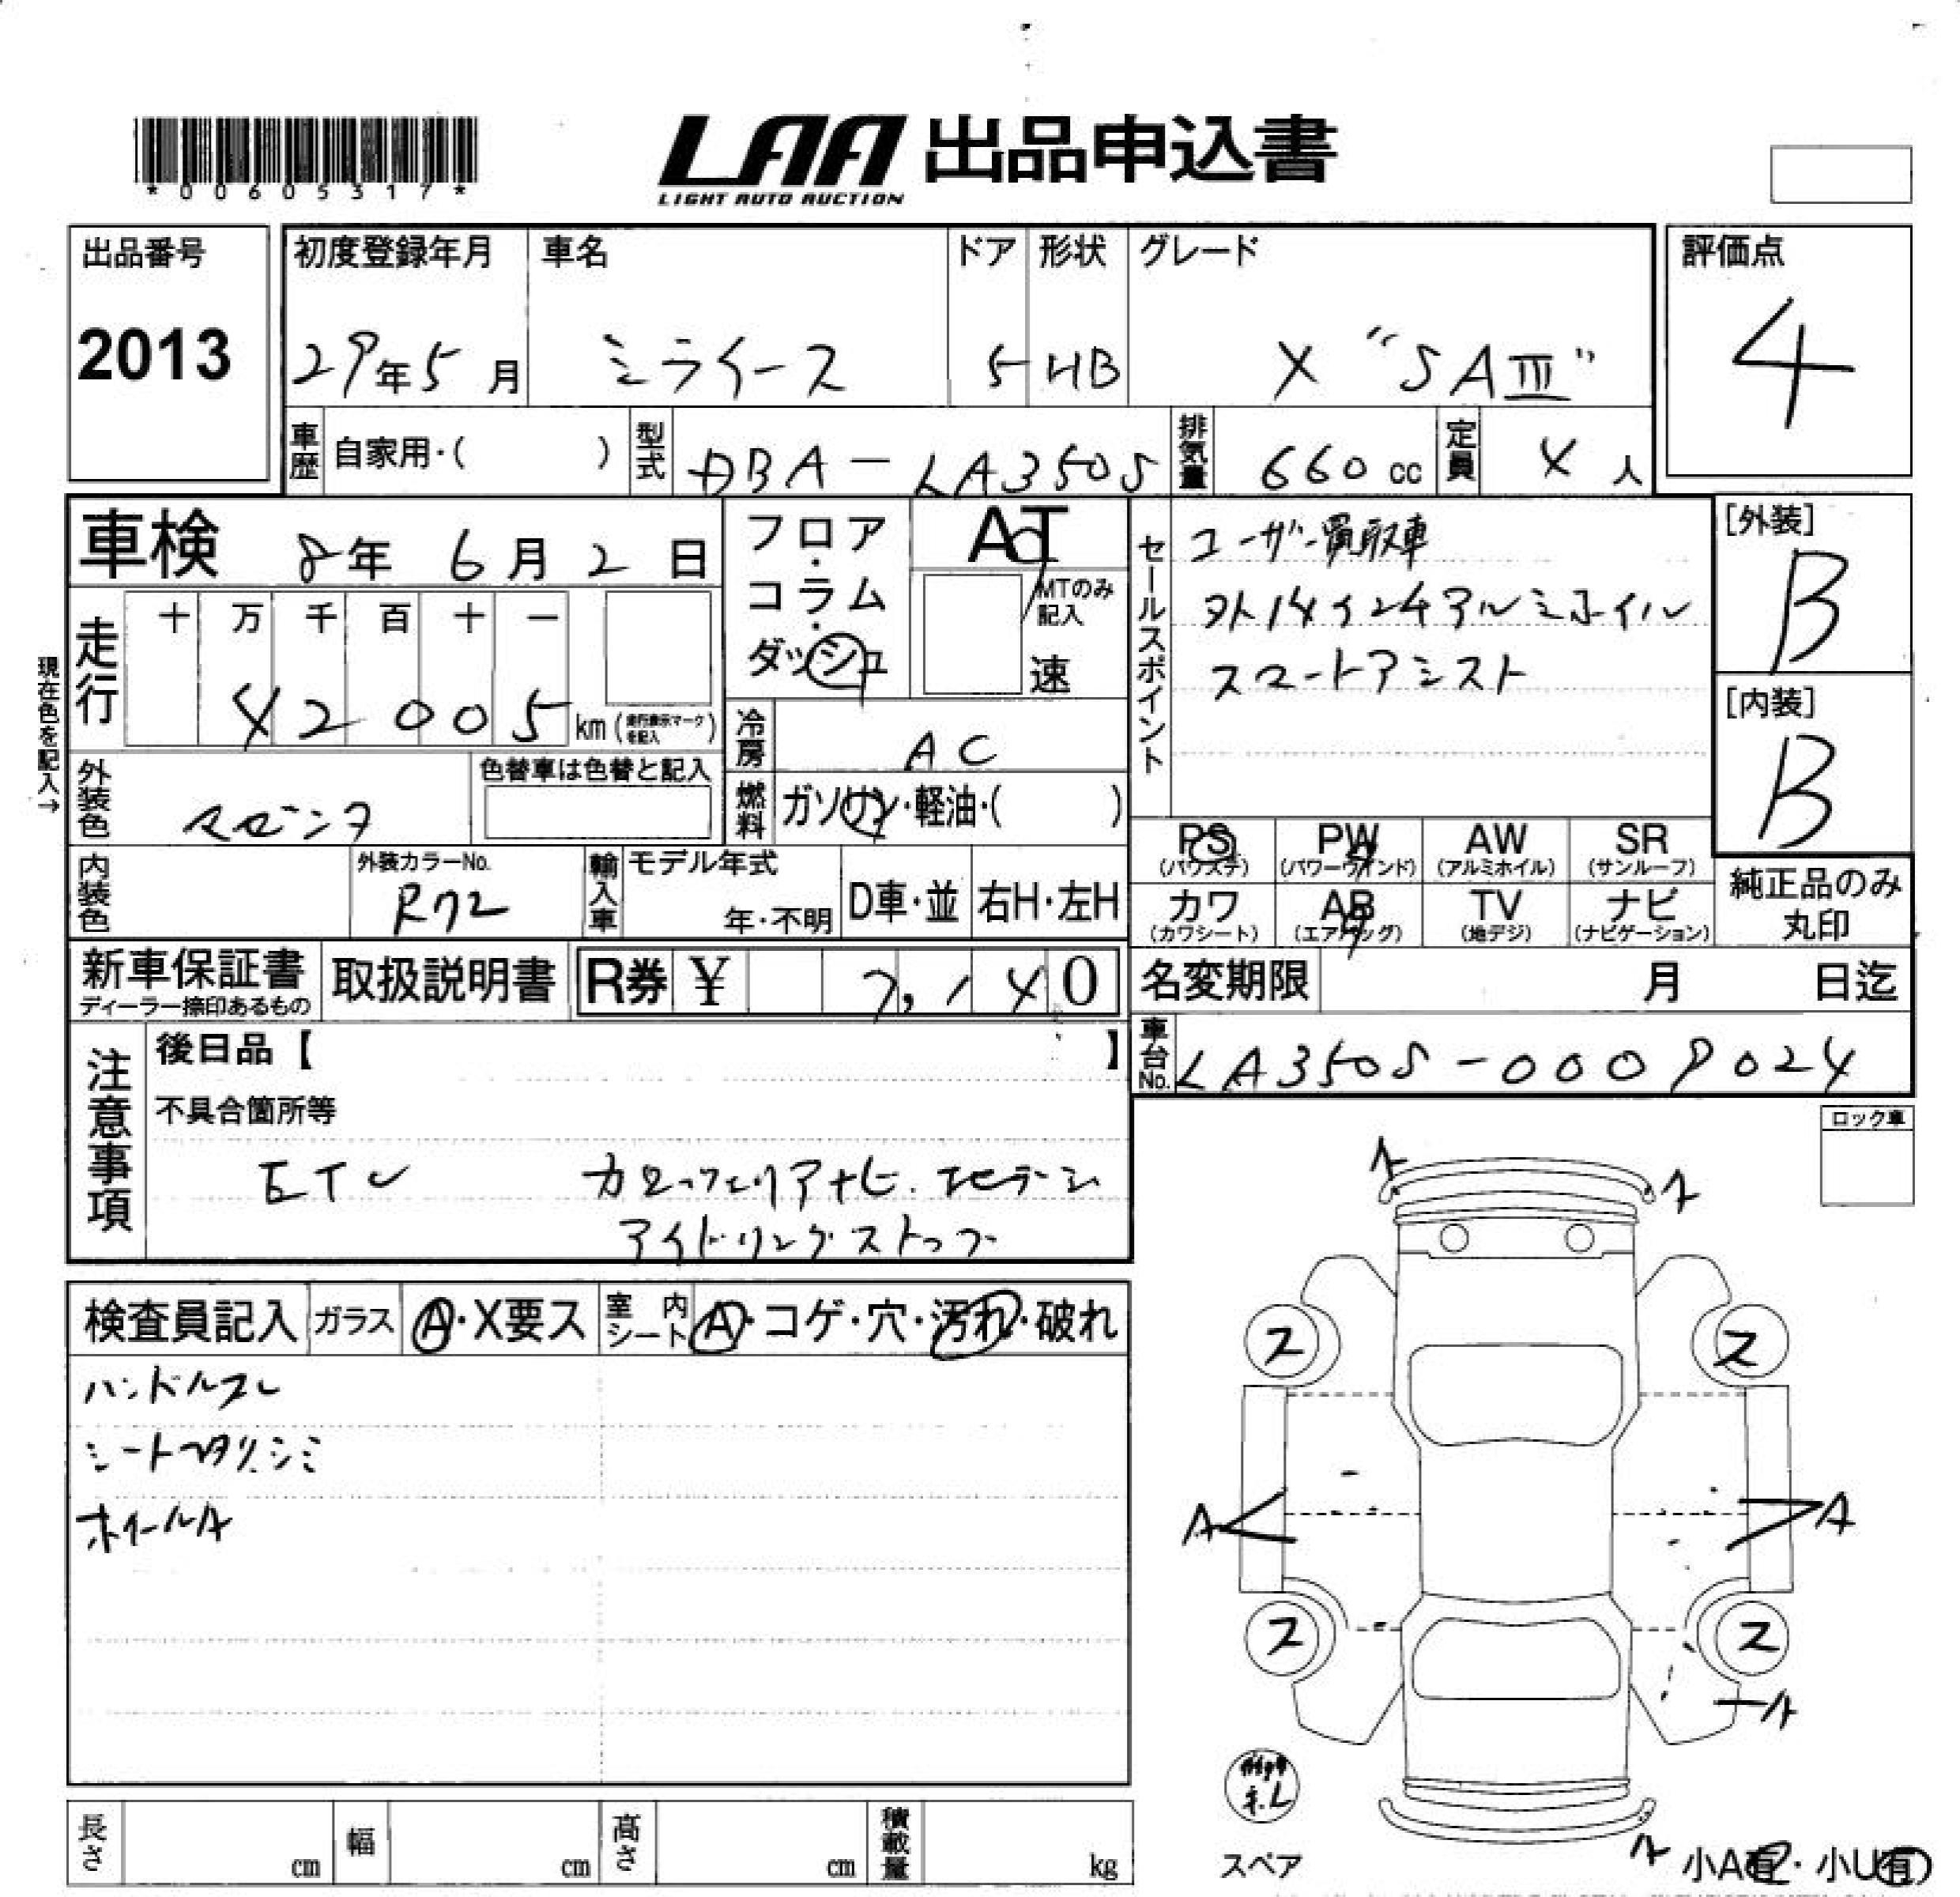 *00605317*
LAA 出品申込書
LIGHT AUTO AUCTION
出品番号
2013
初度登録年月
29年5月
車名
ミライース
ドア
5
形状
HB
グレード
X "SAⅢ"
評価点
4
車歴
自家用・( )
型式
DBA-LA350S
排気量
660cc
定員
4人
車検 8年6月2日
フロア・コラム・ダッシュ
AT
MTのみ記入
速
セールスポイント
ユーザー買取車
スマートアシスト
[外装]
B
[内装]
B
走行
十 万 千 百 十 一
42005 km (走行表示マークを記入)
現在色を記入→
冷房
AC
外装色
マゼンタ
色替車は色替と記入
燃料
ガソリン・軽油・( )
PS (パワステ)
PW (パワーウインド)
AW (アルミホイル)
SR (サンルーフ)
カワ (カワシート)
AB (エアバッグ)
TV (地デジ)
ナビ (ナビゲーション)
純正品のみ丸印
内装色
外装カラーNo.
R72
輸入車
モデル年式
年・不明
D車・並
右H・左H
新車保証書
ディーラー捺印あるもの
取扱説明書
R券 ¥ 7,140
名変期限 月 日迄
車台No.
LA350S-0009024
注意事項
後日品【 】
不具合箇所等
ETC カロッツェリアナビ.
アイドリングストップ
ロック車
検査員記入
ガラス
A・X要ス
室内シート
A・コゲ・穴・汚れ・破れ
ハンドルスレ
シート シミ
ホイールA
A
A
ス
ス
A
A
ス
ス
A
スペア
A
小A有・小U有
長さ cm
幅 cm
高さ cm
積載量 kg